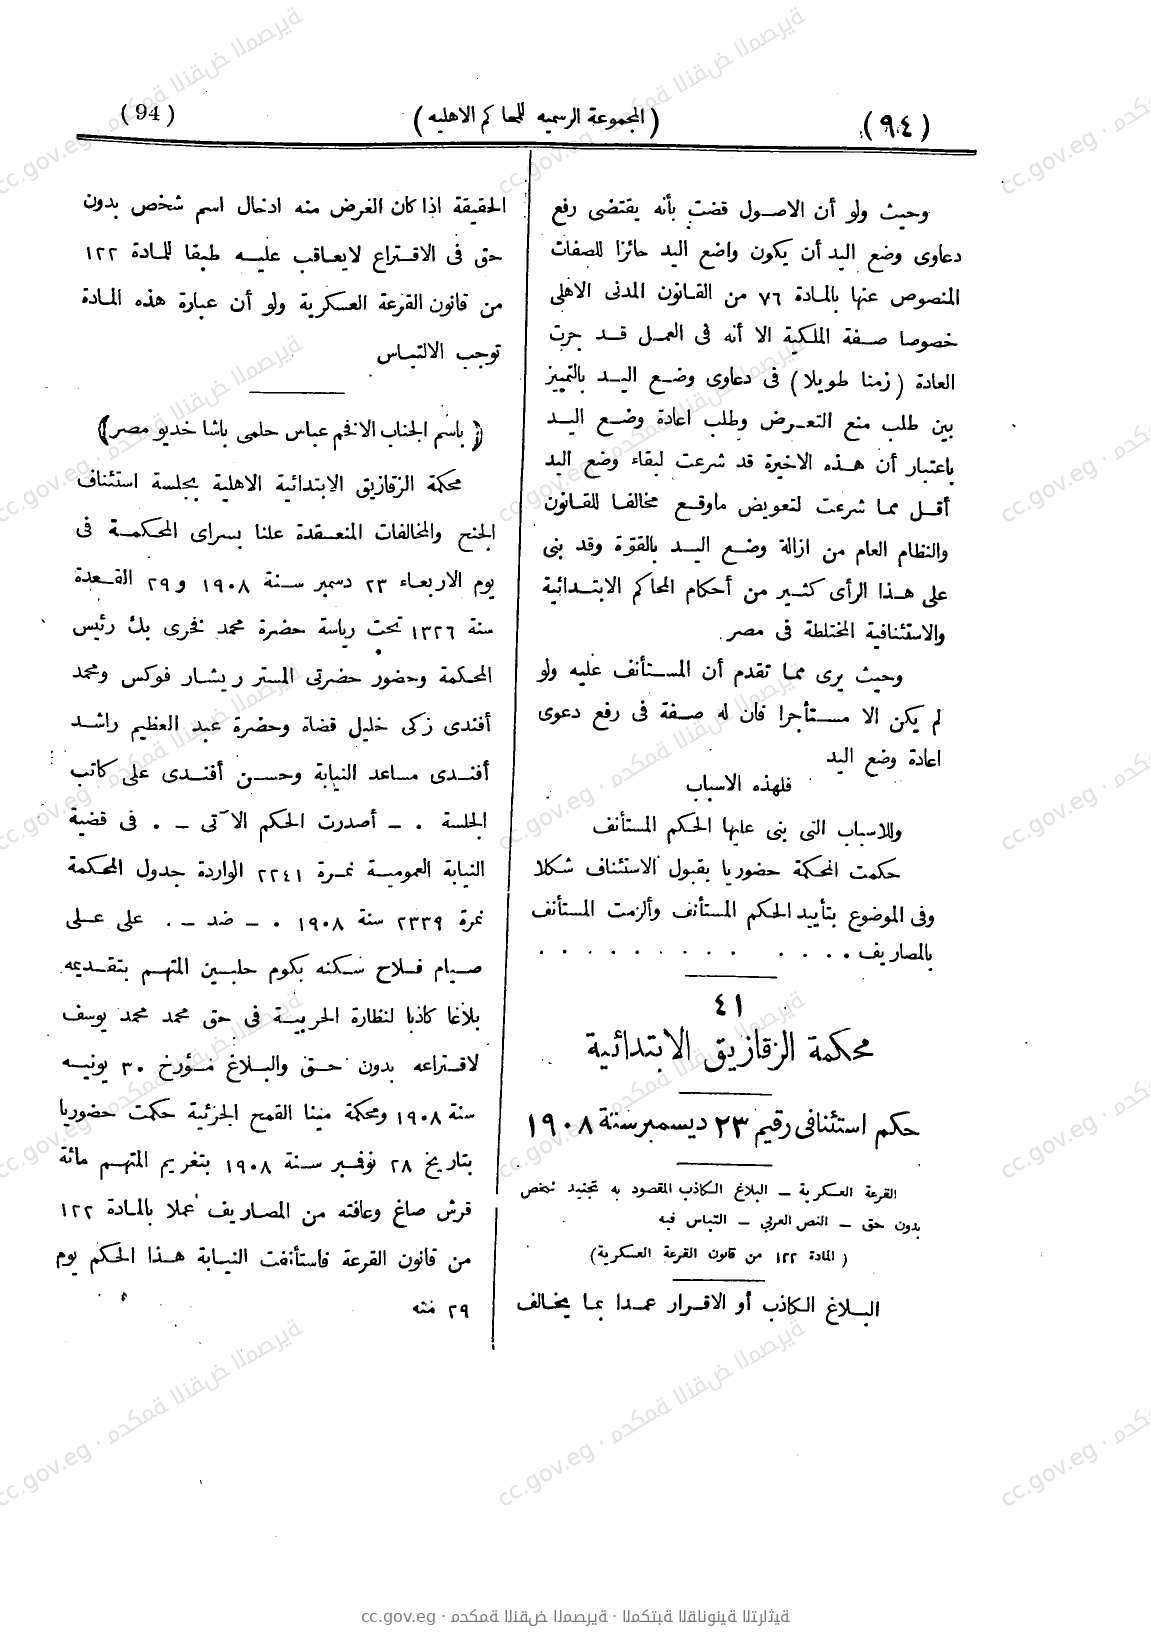 (٩٤)
(المجموعة الرسميه للمحاكم الاهليه)
(94)
وحيث ولو أن الاصول قضت بأنه يقتضى رفع
دعاوى وضع اليد أن يكون واضع اليد حائزا للصفات
المنصوص عنها بالمادة ٧٦ من القانون المدنى الاهلى
خصوصا صفة الملكية الا أنه فى العمل قد جرت
العادة (زمنا طويلا) فى دعاوى وضع اليد بالتمييز
بين طلب منع التعرض وطلب اعادة وضع اليد
باعتبار أن هذه الاخيرة قد شرعت لبقاء وضع اليد
أقل مما شرعت لتعويض ماوقع مخالفا للقانون
والنظام العام من ازالة وضع اليد بالقوة وقد بنى
على هذا الرأى كثير من أحكام المحاكم الابتدائية
والاستئنافية المختلطة فى مصر
وحيث يرى مما تقدم أن المستأنف عليه ولو
لم يكن الا مستأجرا فان له صفة فى رفع دعوى
اعادة وضع اليد
فلهذه الاسباب
وللاسباب التى بنى عليها الحكم المستأنف
حكمت المحكمة حضوريا بقبول الاستئناف شكلا
وفى الموضوع بتأييد الحكم المستأنف وألزمت المستأنف
بالمصاريف . . . . . . . . . . . .
٤١
محكمة الزقازيق الابتدائية
حكم استئنافى رقيم ٢٣ ديسمبر سنة ١٩٠٨
القرعة العسكرية – البلاغ الكاذب المقصود به تجنيد شخص
بدون حق – النص العربي – التباس فيه
(المادة ١٢٢ من قانون القرعة العسكرية)
البلاغ الكاذب أو الاقرار عمدا بما يخالف
الحقيقة اذا كان الغرض منه ادخال اسم شخص بدون
حق فى الاقتراع لايعاقب عليه طبقا للمادة ١٢٢
من قانون القرعة العسكرية ولو أن عبارة هذه المادة
توجب الالتباس
(باسم الجناب الافخم عباس حلمى باشا خديو مصر)
محكمة الزقازيق الابتدائية الاهلية بجلسة استئناف
الجنح والمخالفات المنعقدة علنا بسراى المحكمة فى
يوم الاربعاء ٢٣ دسمبر سنة ١٩٠٨ و٢٩ القعدة
سنة ١٣٢٦ تحت رياسة حضرة محمد فخرى بك رئيس
المحكمة وحضور حضرتى المستر ريشار فوكس ومحمد
أفندى زكى خليل قضاة وحضرة عبد العظيم راشد
أفندى مساعد النيابة وحسن أفندى على كاتب
الجلسة . – أصدرت الحكم الآتى – . فى قضية
النيابة العمومية نمرة ٢٢٤١ الواردة جدول المحكمة
نمرة ٢٣٣٩ سنة ١٩٠٨ . – ضد – . على على
صيام فلاح سكنه بكوم حلبين المتهم بتقديمه
بلاغا كاذبا لنظارة الحربية فى حق محمد محمد يوسف
لاقتراعه بدون حق والبلاغ مؤرخ ٣٠ يونيه
سنة ١٩٠٨ ومحكمة مينا القمح الجزئية حكمت حضوريا
بتاريخ ٢٨ نوفمبر سنة ١٩٠٨ بتغريم المتهم مائة
قرش صاغ وعافته من المصاريف عملا بالمادة ١٢٢
من قانون القرعة فاستأنفت النيابة هذا الحكم يوم
٢٩ منه
cc.gov.eg · محكمة النقض المصرية · المكتبة القانونية التراثية